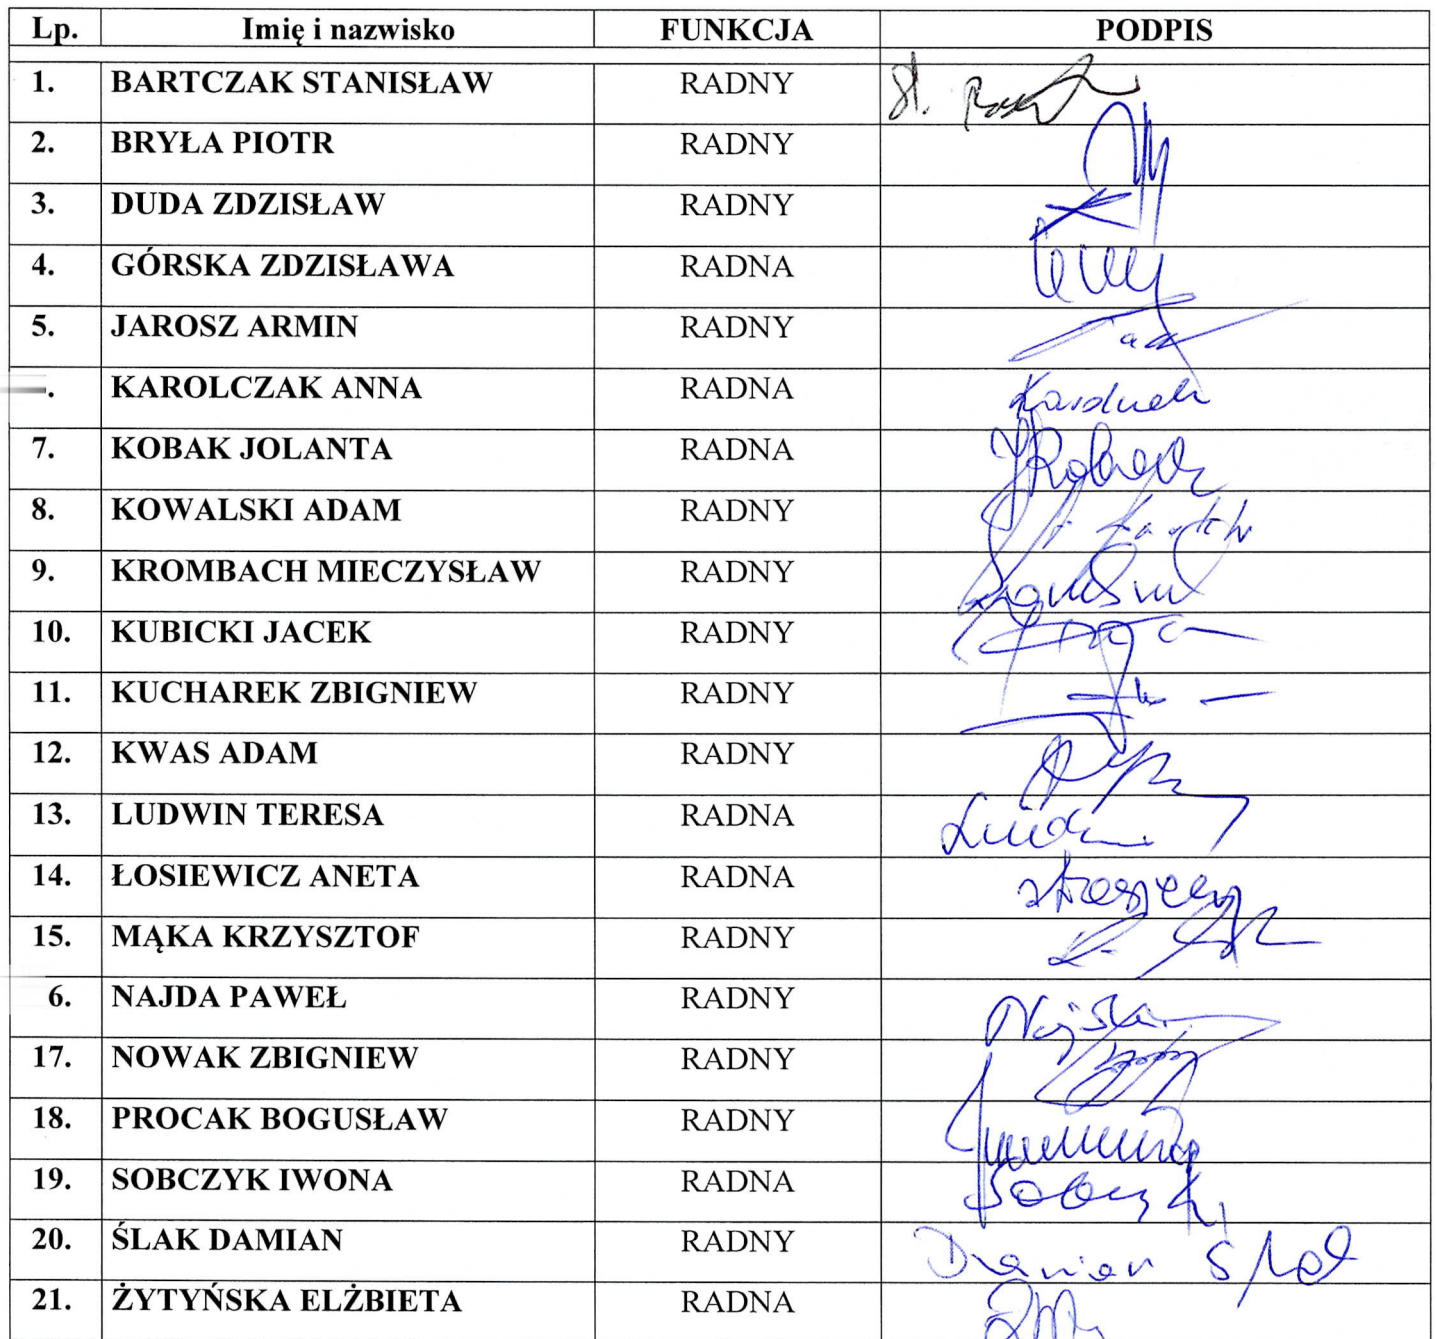 Lp. Imię i nazwisko FUNKCJA PODPIS
1. BARTCZAK STANISŁAW RADNY St.
2. BRYŁA PIOTR RADNY
3. DUDA ZDZISŁAW RADNY
4. GÓRSKA ZDZISŁAWA RADNA
5. JAROSZ ARMIN RADNY
. KAROLCZAK ANNA RADNA
7. KOBAK JOLANTA RADNA
8. KOWALSKI ADAM RADNY
9. KROMBACH MIECZYSŁAW RADNY
10. KUBICKI JACEK RADNY
11. KUCHAREK ZBIGNIEW RADNY
12. KWAS ADAM RADNY
13. LUDWIN TERESA RADNA
14. ŁOSIEWICZ ANETA RADNA
15. MĄKA KRZYSZTOF RADNY
6. NAJDA PAWEŁ RADNY
17. NOWAK ZBIGNIEW RADNY
18. PROCAK BOGUSŁAW RADNY
19. SOBCZYK IWONA RADNA
20. ŚLAK DAMIAN RADNY Damian Ślak
21. ŻYTYŃSKA ELŻBIETA RADNA